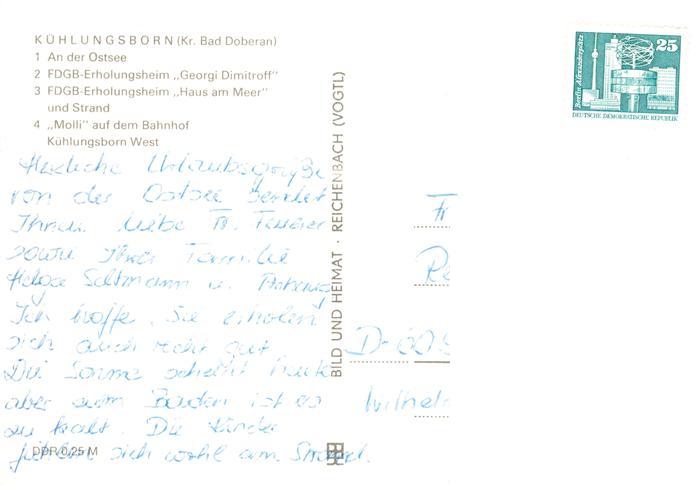 KÜHLUNGSBORN (Kr. Bad Doberan)
1 An der Ostsee
2 FDGB-Erholungsheim „Georgi Dimitroff"
3 FDGB-Erholungsheim „Haus am Meer"
und Strand
4 „Molli" auf dem Bahnhof
Kühlungsborn West
Herzliche Urlaubsgrüße
von der Ostsee sendet
Ihnen liebe Fr.
sowie Ihrer Familie
Helga Saltmann u.
Ich hoffe, Sie erholen
sich auch recht gut
Die Sonne scheint heute
aber zum Baden ist es
zu kalt. Die Kinder
fühlen sich wohl am Strand.
DDR 0,25 M
BILD UND HEIMAT · REICHENBACH (VOGTL)
Berlin, Alexanderplatz
25
DEUTSCHE DEMOKRATISCHE REPUBLIK
Fr
Re
Wilhel